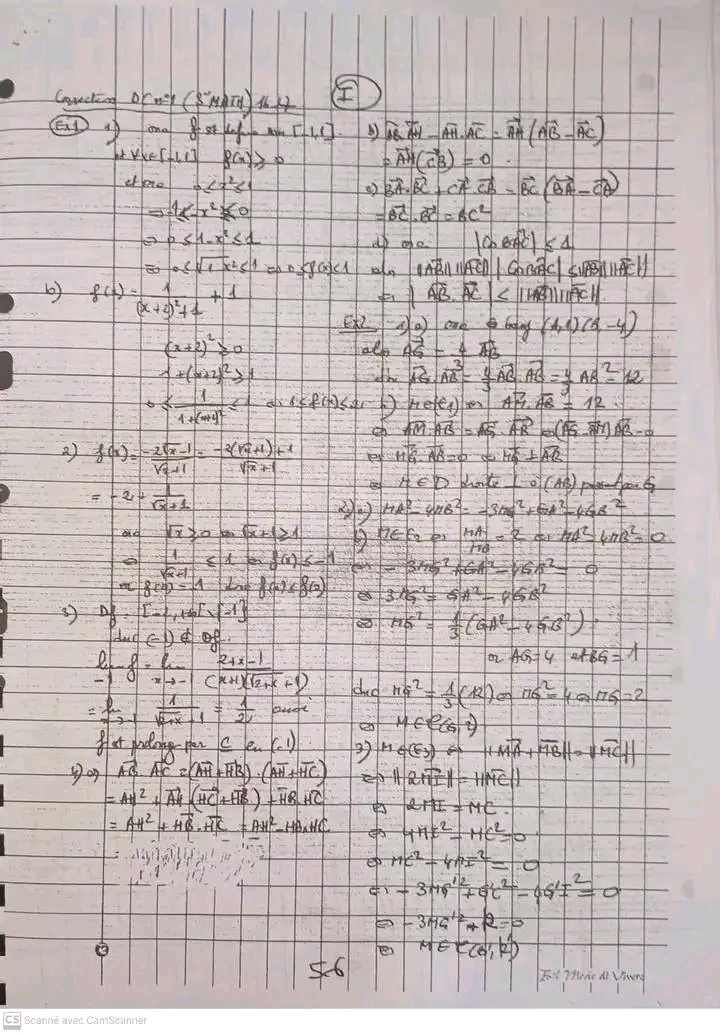 Correction DC n°1 (3ème MATH) 16.17
I
Ex1 1) on a f est définie sur [-1,1].
et ∀x∈[-1,1] f(x) ≥ 0
et on a 0 ≤ x² ≤ 1
⇒ -1 ≤ -x² ≤ 0
⇒ 0 ≤ 1-x² ≤ 1
⇒ 0 ≤ √1-x² ≤ 1 ⇒ 0 ≤ f(x) ≤ 1
b) f(x) = 1/((x+2)²+1) + 1
(x+2)² ≥ 0
1+(x+2)² ≥ 1
0 ≤ 1/(1+(x+2)²) ≤ 1 ⇒ 1 ≤ f(x) ≤ 2
2) f(x) = (-2√x-1)/(√x+1) = (-2(√x+1)+1)/(√x+1)
= -2 + 1/(√x+1)
on a √x ≥ 0 ⇒ √x+1 ≥ 1
⇒ 1/(√x+1) ≤ 1 ⇒ f(x) ≤ -1
or f(0) = -1 donc f(x) ≤ f(0)
3) Df = [-2,+∞[ \ {-1}
donc (-1) ∉ Df.
lim f = lim (2+x-1)/((x+1)(√2+x+1))
-1 x→-1
= lim x→-1 1/(√2+x+1) = 1/2 ainsi
f est prolong par C en (-1)
4) a) AB.AC = (AH+HB).(AH+HC)
= AH² + AH.(HC+HB) + HB.HC
= AH² + HB.HC = AH² - HB×HC
b) AB.AH - AH.AC = AH(AB-AC)
= AH(CB) = 0.
c) BA.BC + CA.CB = BC(BA-CA)
= BC.BC = BC²
d) on a |Cos BAC| ≤ 1
alors ||AB|| ||AC|| |Cos BAC| ≤ ||AB|| ||AC||
⇔ |AB.AC| ≤ ||AB|| ||AC||.
Ex2 1) a) on a G bary (A,1)(B,-4)
alors AG = 4/3 AB
donc AG.AB = 4/3 AB.AB = 4/3 AB² = 12
b) M∈(E1) ⇔ AM.AB = 12.
⇔ AM.AB = AG.AB ⇔ (AG-AM)AB = 0
⇔ MG.AB = 0 ⇔ MG ⊥ AB
⇔ M∈D droite ⊥ à (AB) passant par G
2) a) MA²-4MB² = -3MG²+GA²-4GB²
b) M∈E2 ⇔ MA/MB = 2 ⇔ MA²-4MB² = 0
⇔ -3MG²+GA²-4GB² = 0
⇔ 3MG² = GA²-4GB²
⇔ MG² = 1/3(GA²-4GB²)
or AG = 4 et BG = 1
donc MG² = 1/3(12) ⇔ MG² = 4 ⇔ MG = 2
⇔ M∈C(G,2)
3) M∈(E3) ⇔ ||MA+MB|| = ||MC||
⇔ ||2MI|| = ||MC||
⇔ 2MI = MC.
⇔ 4MI²-MC² = 0
⇔ MC²-4MI² = 0
⇔ -3MG'²+G'C²-4G'I² = 0
⇔ -3MG'²+k = 0
⇔ M∈C(G',k')
56
CS Scanné avec CamScanner